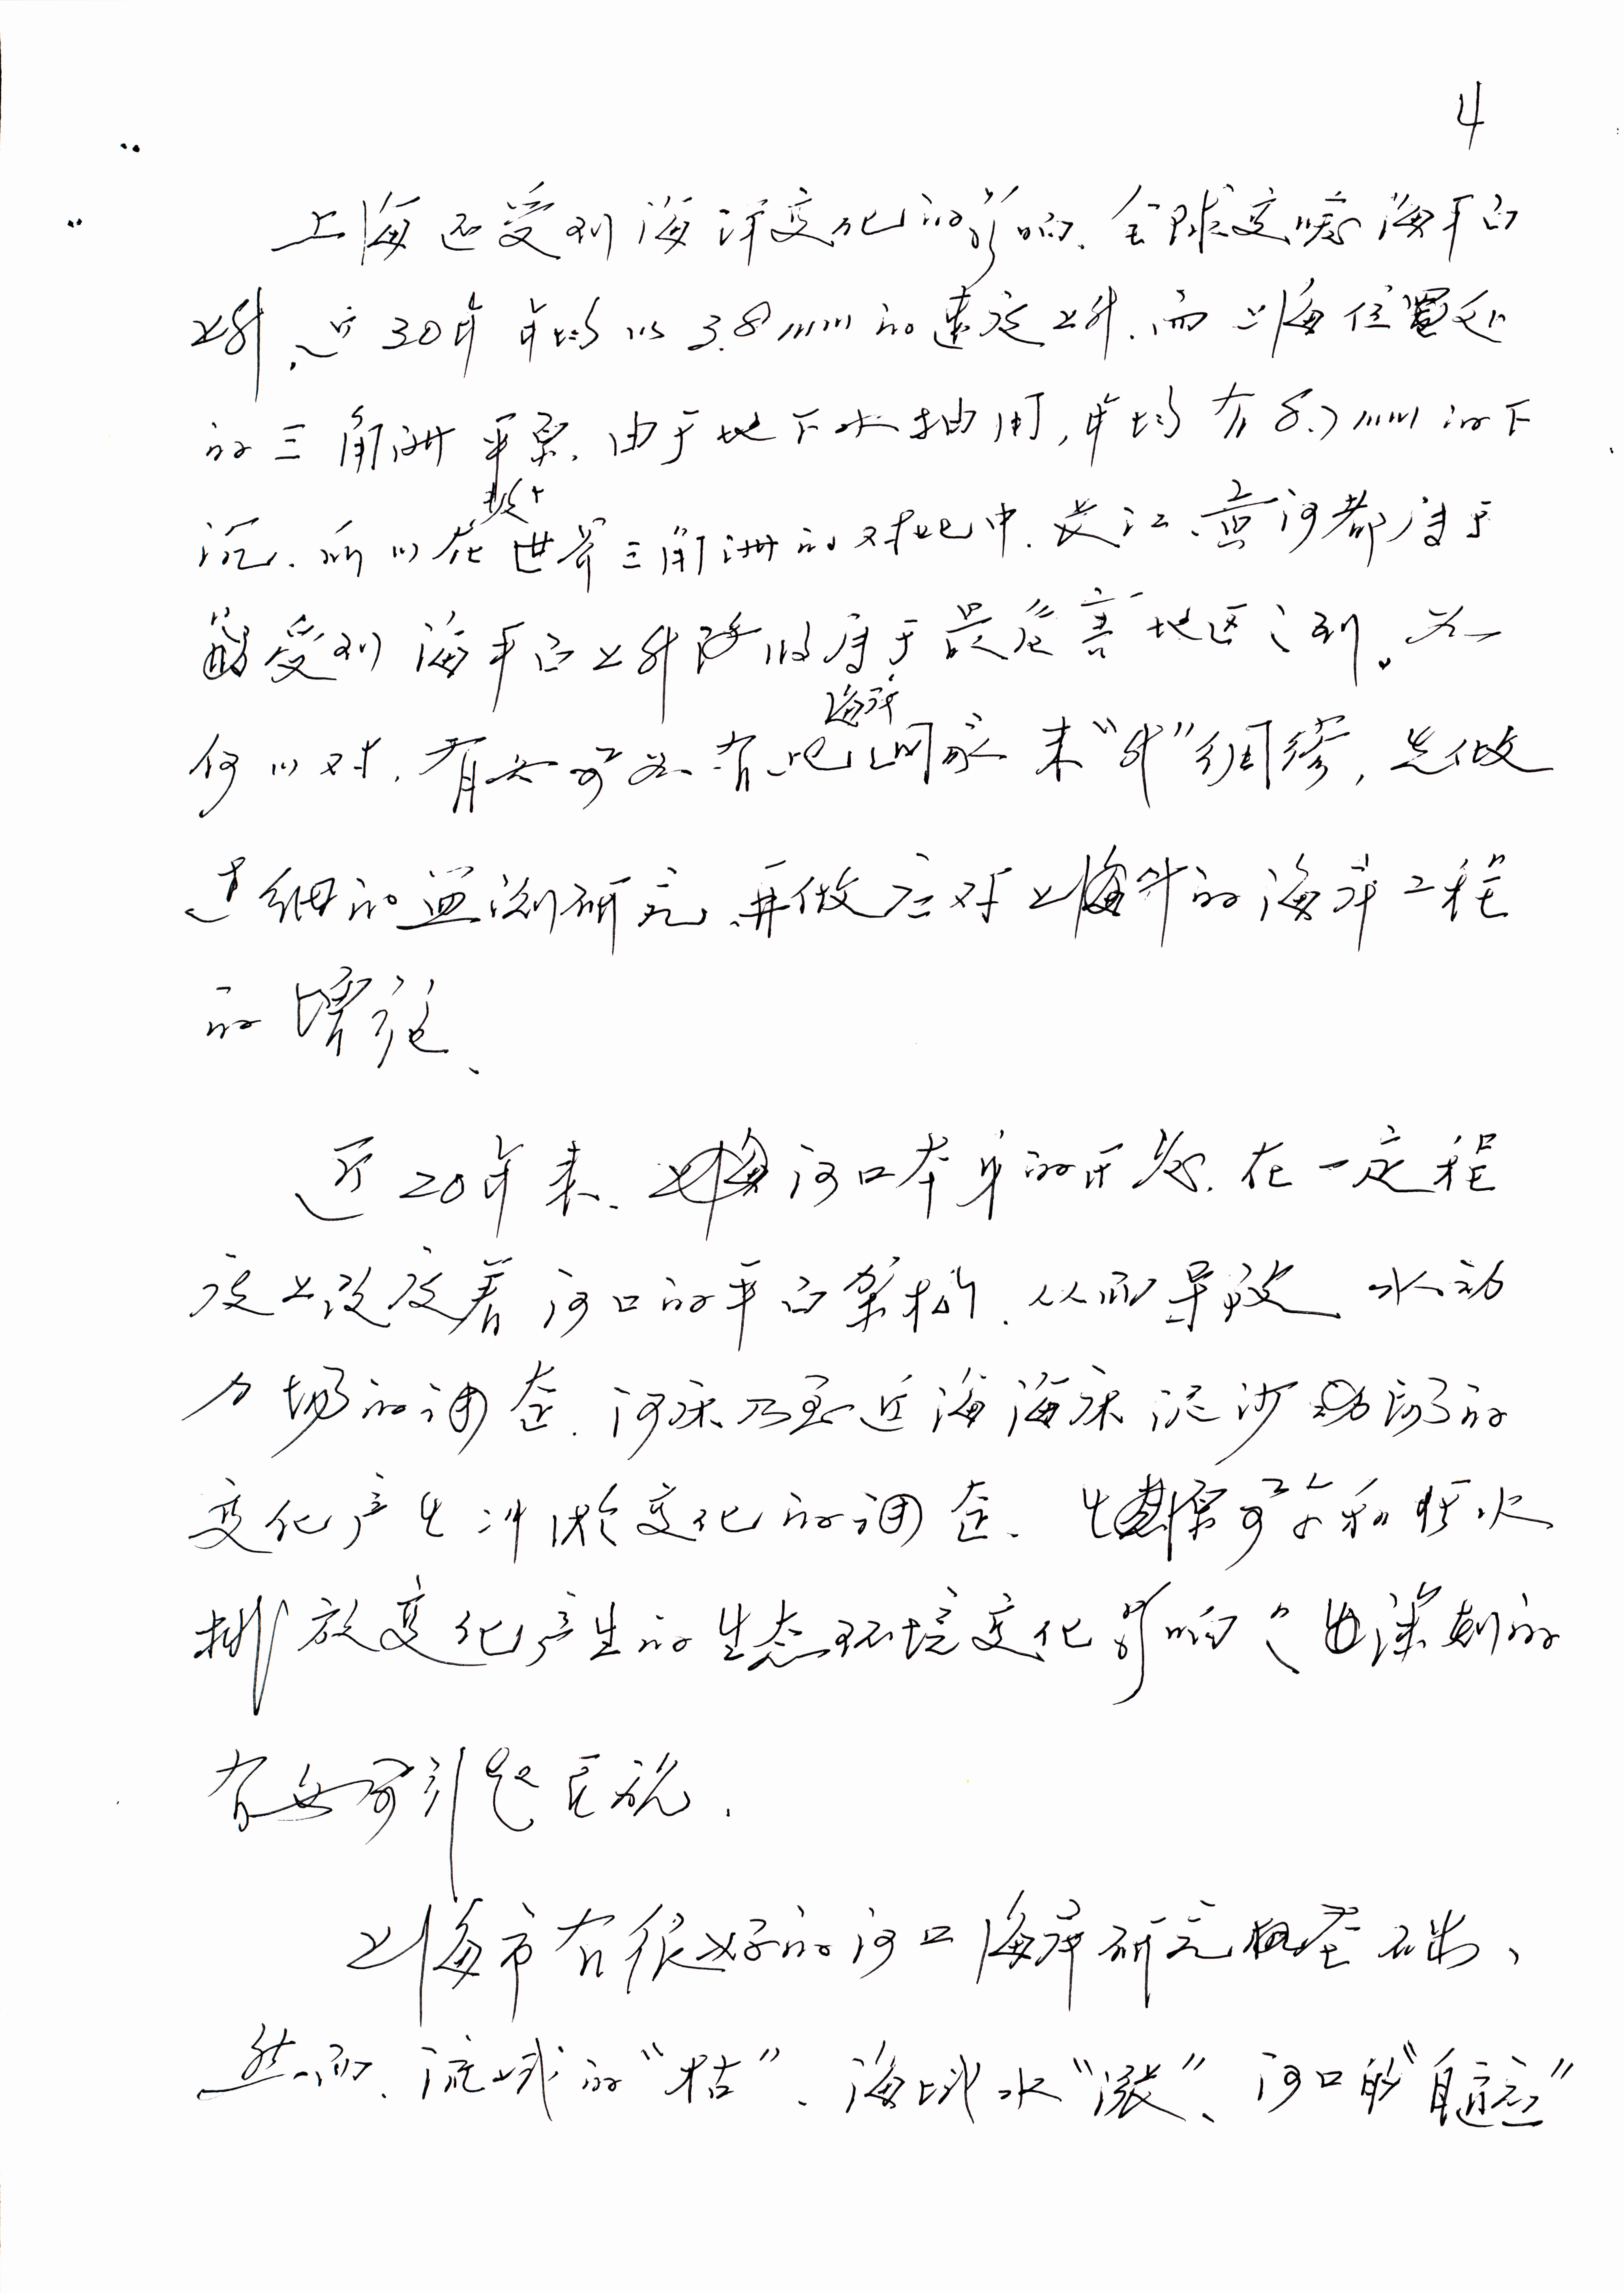 4
上海还受到海洋变化的影响.全球变暖海平面
上升、近30年年均以3.8mm的速度上升.而上海位置处
的三角洲平原.由于地下水抽用,年均有8.7mm的下
沉.所以在世界三角洲的对比中.长江、黄河都属于
受到海平面上升 属于最危害地区之列。如
何以对.有必要 有些海洋国家未“升”绸缪,先做
过细的监测研究.再做应对上海升的海洋工程
的
近20年来.河口本身的开发.在一定程
度上改变着河口的平面架构.从而导致 水动
力场的调查.河床乃至近海海床泥沙 的
变化产生冲淤变化的调查. 和污水
排放变化产生的生态环境变化影响 深刻的
有必要引起重视.
上海市有很好的河口海岸研究基础、
然而.流域的“枯”.海域水“涨”、河口的“自适应”